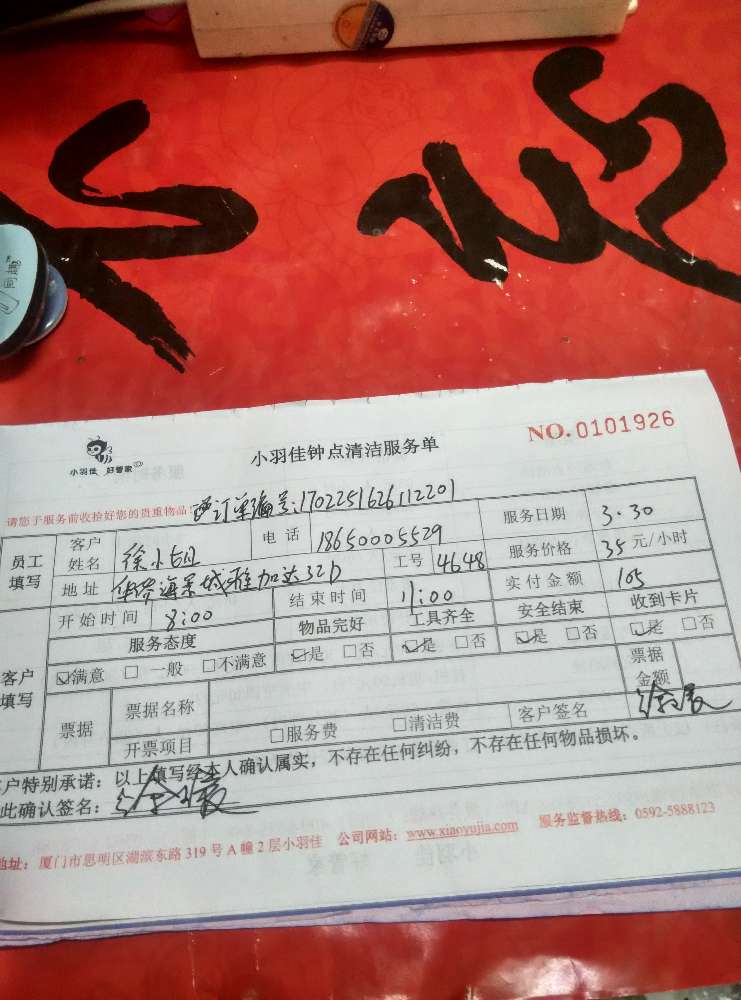 小羽佳 好管家
小羽佳钟点清洁服务单
NO.0101926
请您于服务前收拾好您的贵重物品
订单编号:1702251626112201
员工填写
客户姓名 徐小姐 电话 18650005529 服务日期 3.30
地址 华塔海景城雅加达32D 工号 4648 服务价格 35元/小时
客户填写
开始时间 8:00 结束时间 11:00 实付金额 105
服务态度 物品完好 工具齐全 安全结束 收到卡片
☑满意 □一般 □不满意 ☑是 □否 ☑是 □否 ☑是 □否 ☑是 □否
票据 票据名称 票据金额
开票项目 □服务费 □清洁费 客户签名
客户特别承诺：以上填写经本人确认属实，不存在任何纠纷，不存在任何物品损坏。
此确认签名：
地址：厦门市思明区湖滨东路319号A幢2层小羽佳 公司网站：www.xiaoyujia.com 服务监督热线：0592-5888123